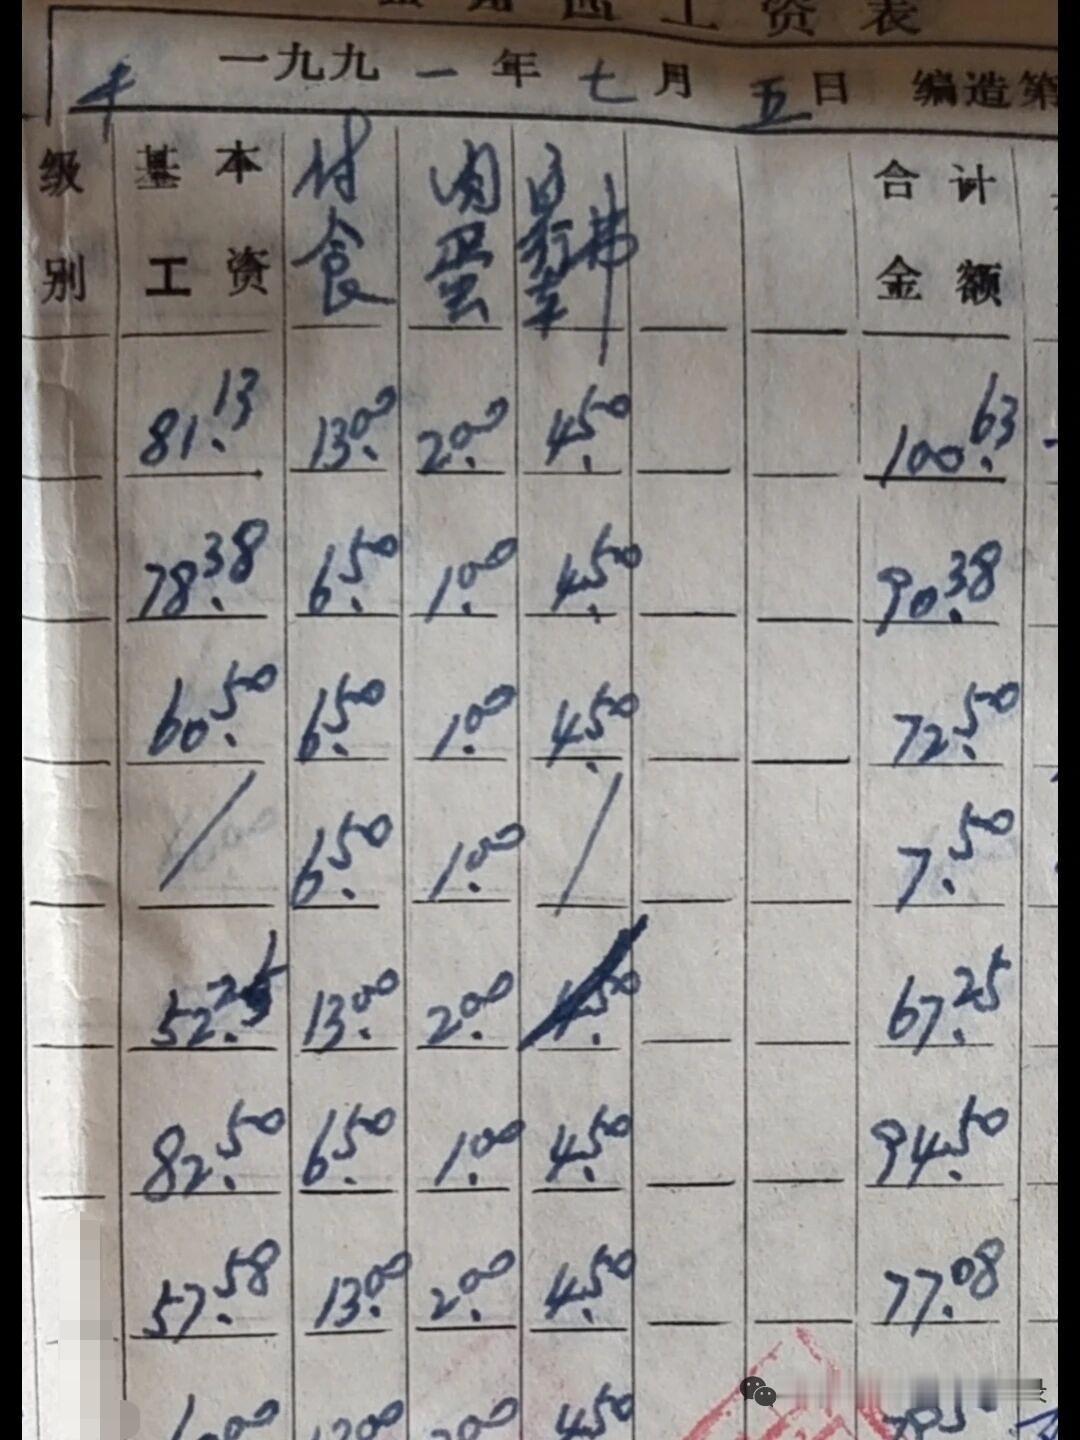 工资表
一九九一年七月五日 编造第
级别 基本工资 付食 肉蛋 自行车 合计金额
81.13 13.00 2.00 4.50 100.63
78.38 6.50 1.00 4.50 90.38
60.50 6.50 1.00 4.50 72.50
/ 6.50 1.00 / 7.50
52.25 13.00 2.00 4.50 67.25
82.50 6.50 1.00 4.50 94.50
57.58 13.00 2.00 4.50 77.08
4.50